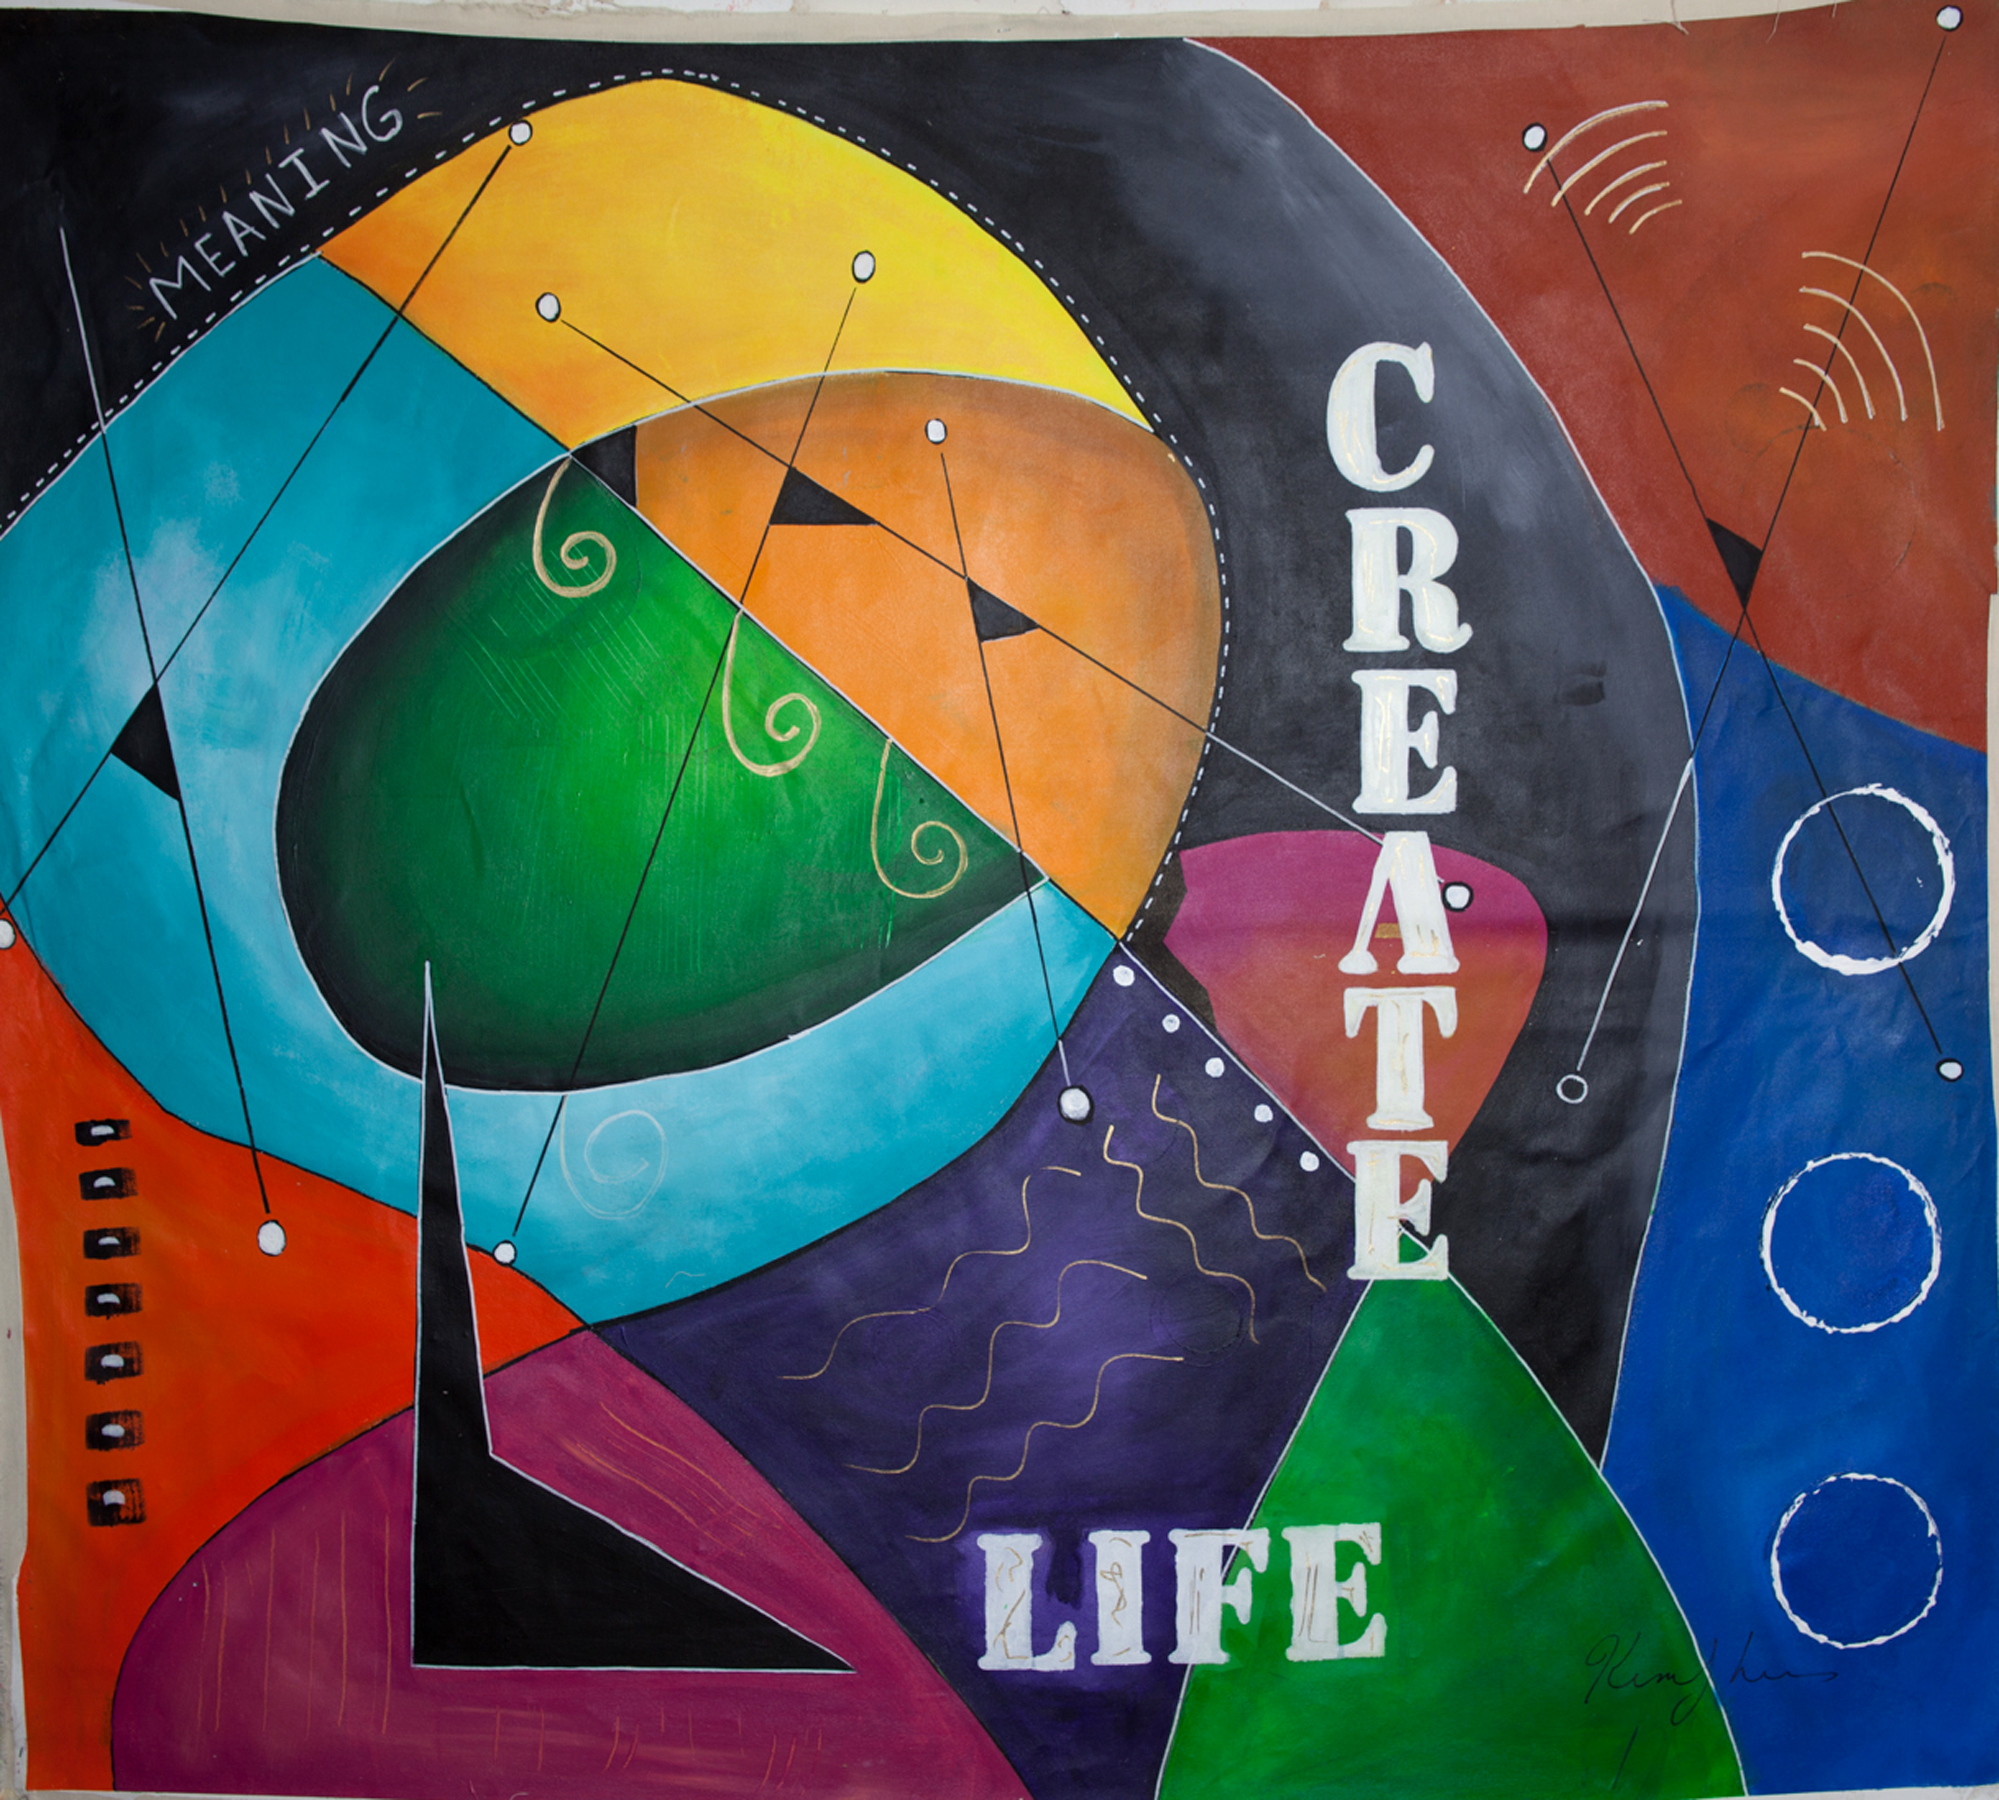 MEANING
CREATE
LIFE